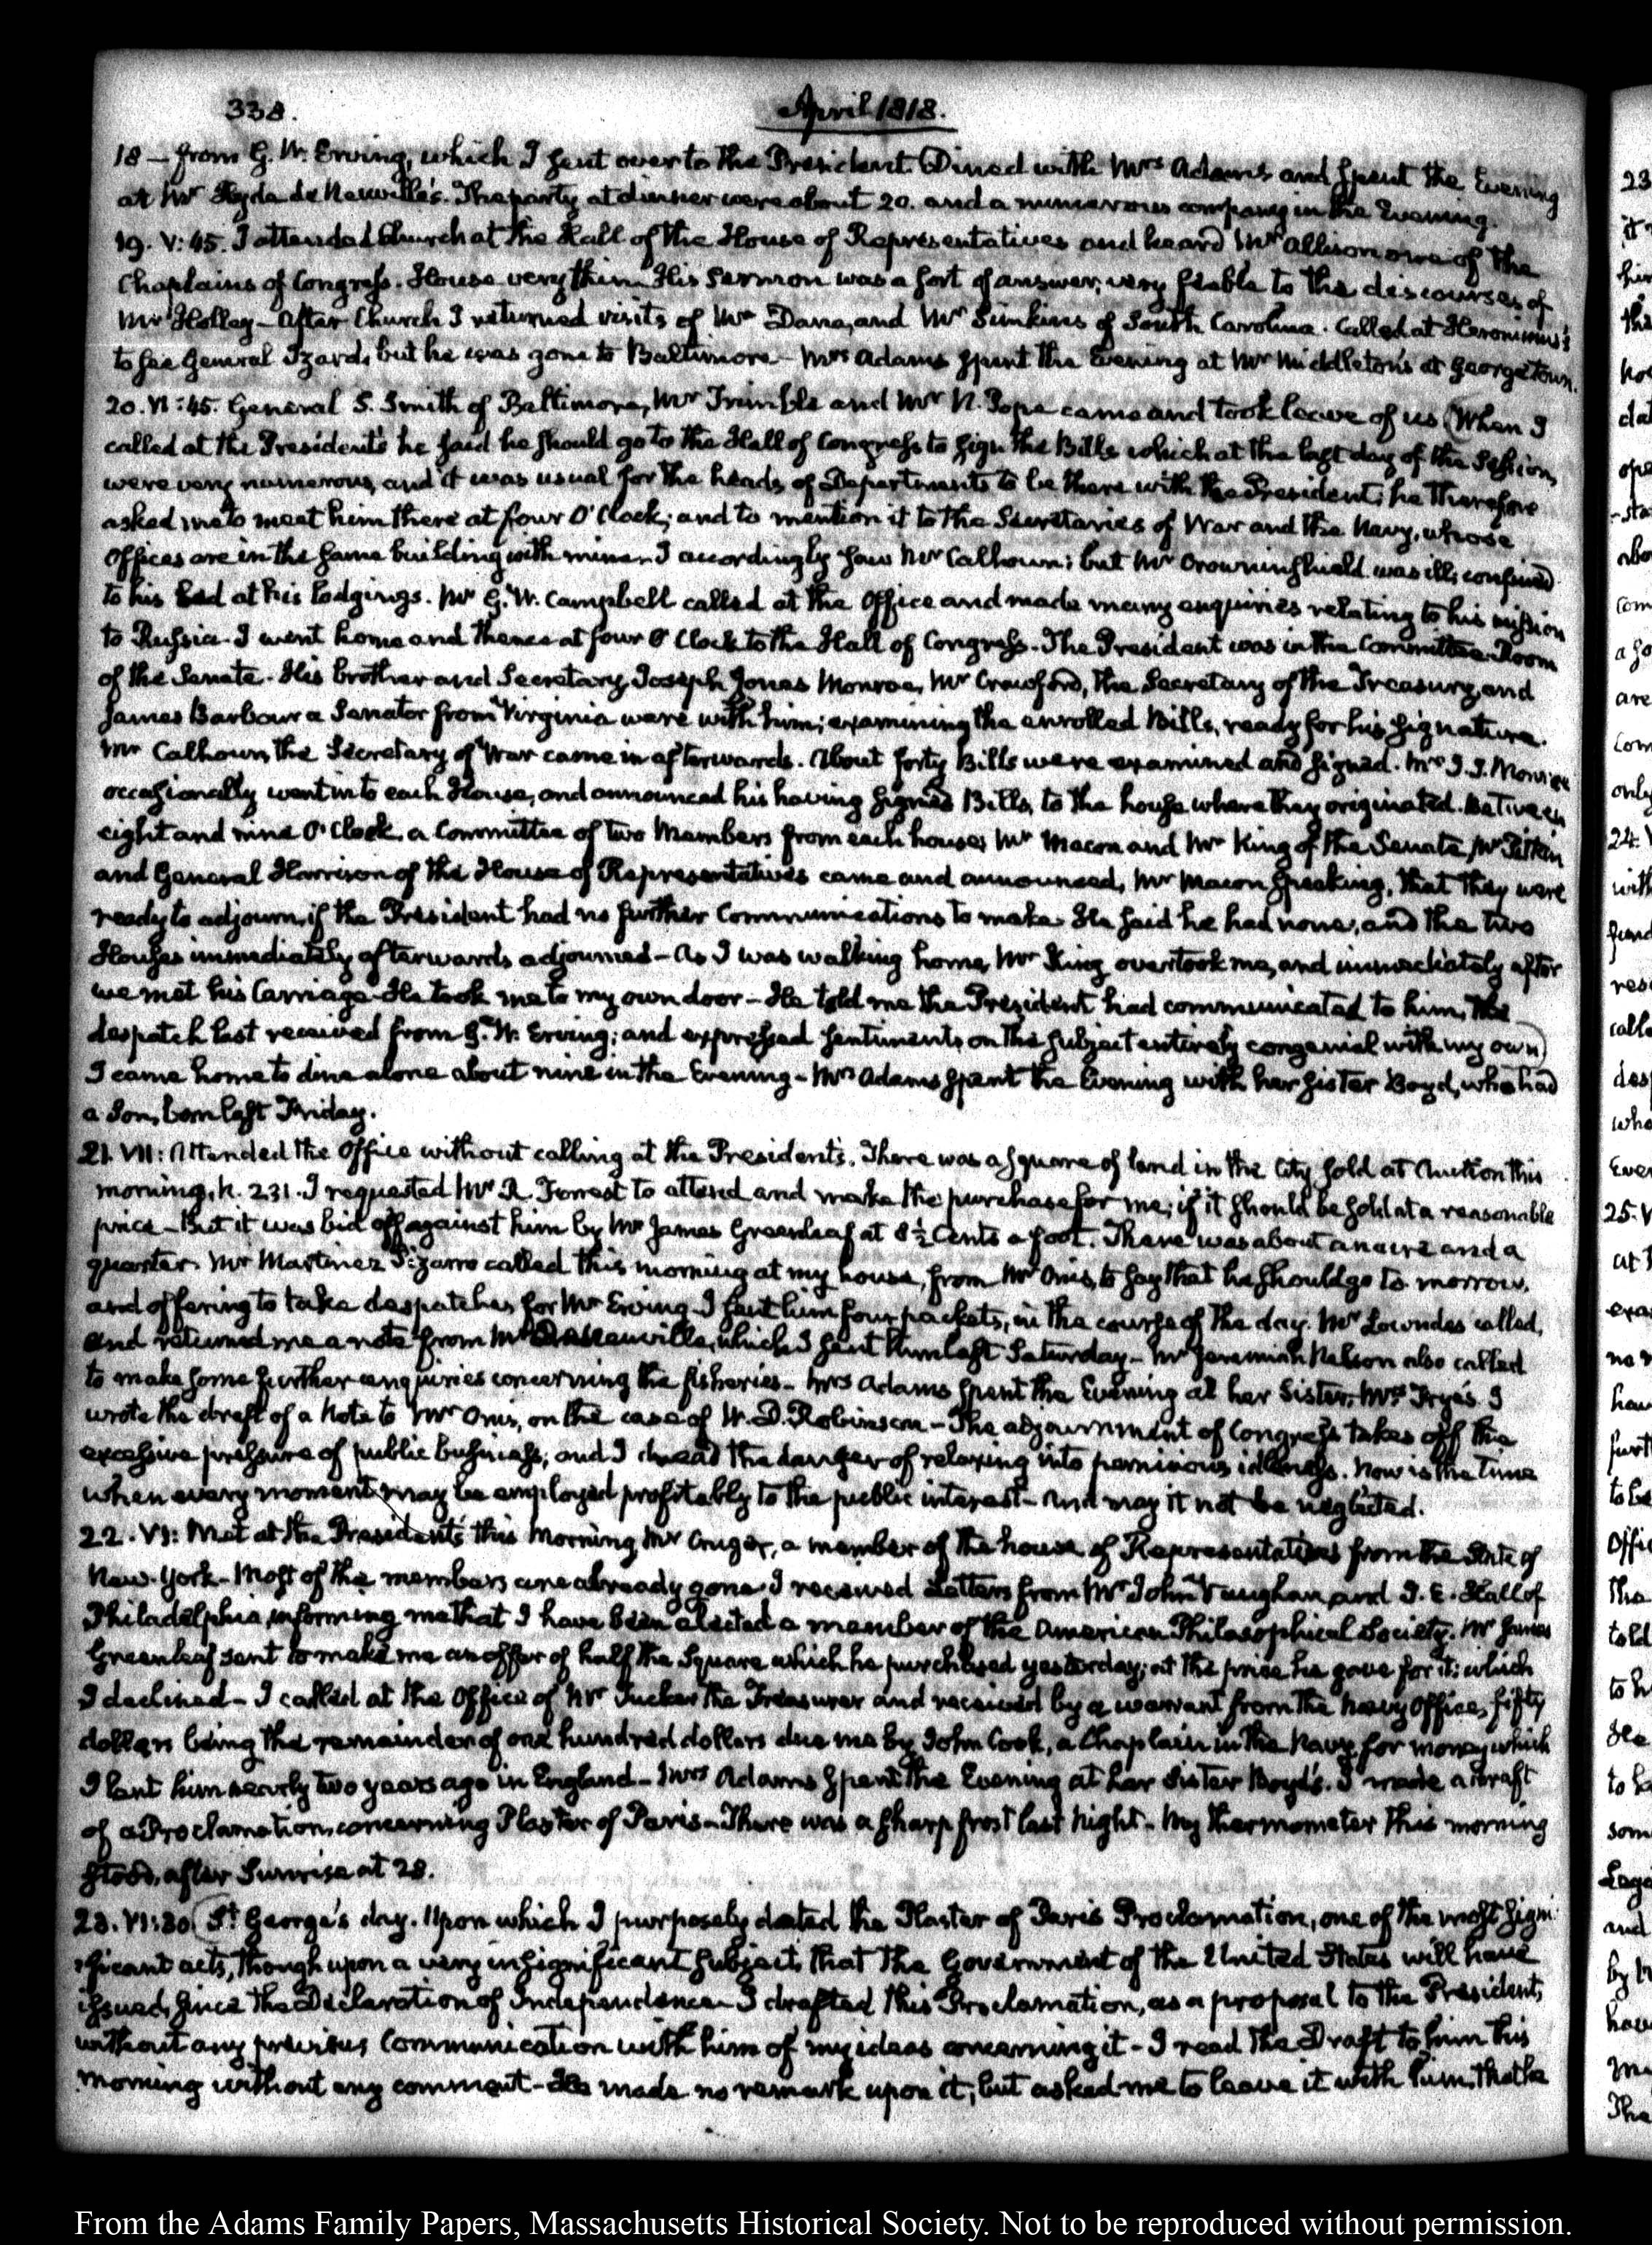 338.
April 1818.
18 — from G. W. Erving, which I sent over to the President. Dined with Mrs Adams and spent the Evening
at Mr Hyde de Neuville's. The party at dinner were about 20. and a numerous company in the Evening.
19. V:45. I attended Church at the Hall of the House of Representatives and heard Mr Allison one of the
Chaplains of Congress. House very thin. His Sermon was a sort of answer, very feeble to the discourses of
Mr Holley — After Church I returned visits of Mr Dana, and Mr Simkins of South Carolina. Called at Heronimus's
to see General Izard, but he was gone to Baltimore — Mrs Adams spent the Evening at Mr Middleton's at Georgetown.
20. VI:45. General S. Smith of Baltimore, Mr Trimble and Mr N. Pope came and took leave of us (When I
called at the President's he said he should go to the Hall of Congress to sign the Bills which at the last day of the Session,
were very numerous, and it was usual for the heads of Departments to be there with the President; he therefore
asked me to meet him there at four O'Clock; and to mention it to the Secretaries of War and the Navy, whose
Offices are in the same building with mine. I accordingly saw Mr Calhoun; but Mr Crowninshield was ill, confined
to his bed at his lodgings. Mr G. W. Campbell called at the Office and made many enquiries relating to his mission
to Russia. I went home and thence at four O'Clock to the Hall of Congress. The President was in the Committee Room
of the Senate. His brother and Secretary, Joseph Jones Monroe, Mr Crawford, the Secretary of the Treasury, and
James Barbour a Senator from Virginia were with him; examining the enrolled Bills, ready for his signature.
Mr Calhoun the Secretary of War came in afterwards. About forty Bills were examined and signed. Mr J. J. Monroe
occasionally went into each House, and announced his having signed Bills, to the house where they originated. Between
eight and nine O'Clock, a Committee of two Members from each house, Mr Macon and Mr King of the Senate, Mr Pitkin
and General Harrison of the House of Representatives came and announced, Mr Macon speaking, that they were
ready to adjourn, if the President had no further Communications to make. He said he had none, and the two
Houses immediately afterwards adjourned — As I was walking home, Mr King overtook me, and immediately after
we met his Carriage. He took me to my own door — He told me the President had communicated to him, the
despatch last received from G. W. Erving; and expressed sentiments on the subject entirely congenial with my own)
I came home to dine alone about nine in the Evening — Mrs Adams spent the Evening with her Sister Boyd, who had
a Son, born last Friday.
21. VII: Attended the Office without calling at the President's. There was a square of land in the City sold at Auction this
morning, N. 231. I requested Mr R. Forrest to attend and make the purchase for me; if it should be sold at a reasonable
price — But it was bid off against him by Mr James Greenleaf at 8½ Cents a foot. There was about an acre and a
quarter. Mr Martinez Pizarro called this morning at my house, from Mr Onis, to say that he should go to-morrow,
and offering to take despatches for Mr Erving. I sent him four packets, in the course of the day. Mr Lowndes called,
and returned me a note from Mr De Neuville, which I sent him last Saturday — Mr Jeremiah Nelson also called
to make some further enquiries concerning the fisheries — Mrs Adams spent the Evening at her Sister, Mrs Frye's. I
wrote the draft of a Note to Mr Onis, on the case of W. D. Robinson — The adjournment of Congress takes off the
excessive pressure of public business; and I dread the danger of relaxing into pernicious idleness. Now is the time
when every moment may be employed profitably to the public interest — And may it not be neglected.
22. VI: Met at the President's this Morning Mr Cruger, a member of the house of Representatives from the State of
New-York — Most of the members are already gone. I received Letters from Mr John Vaughan, and J. E. Hall of
Philadelphia, informing me that I have been elected a member of the American Philosophical Society. Mr James
Greenleaf sent to make me an offer of half the Square which he purchased yesterday; at the price he gave for it; which
I declined — I called at the Office of Mr Tucker the Treasurer and received by a warrant from the Navy Office, fifty
dollars being the remainder of one hundred dollars due me by John Cook, a Chaplain in the Navy, for money which
I lent him nearly two years ago in England — Mrs Adams spent the Evening at her Sister Boyd's. I made a draft
of a Proclamation, concerning Plaster of Paris — There was a sharp frost last Night — My thermometer this morning
stood, after Sunrise at 28.
23. VI:30. (St George's day. Upon which I purposely dated the Plaster of Paris Proclamation, one of the most signi-
ficant acts, though upon a very insignificant subject, that the Government of the United States will have
issued, since the Declaration of Independence — I drafted this Proclamation, as a proposal to the President,
without any previous Communication with him of my ideas concerning it — I read the Draft to him this
morning without any comment — He made no remark upon it; but asked me to leave it with him, that he
From the Adams Family Papers, Massachusetts Historical Society. Not to be reproduced without permission.